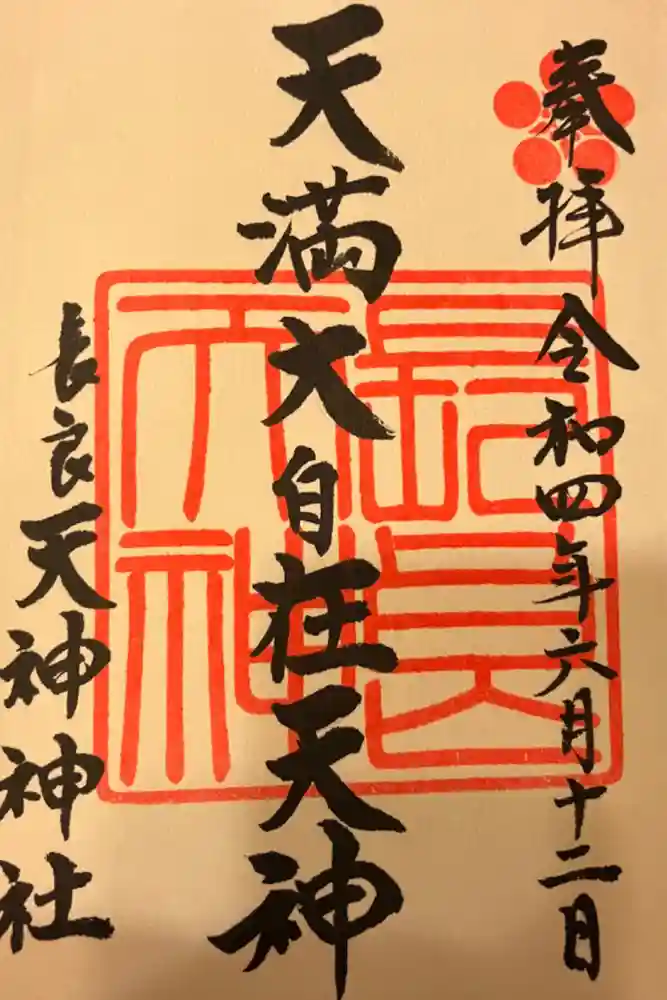 奉拝令和四年六月十二日
天満大自在天神
長良天神神社
長良天神